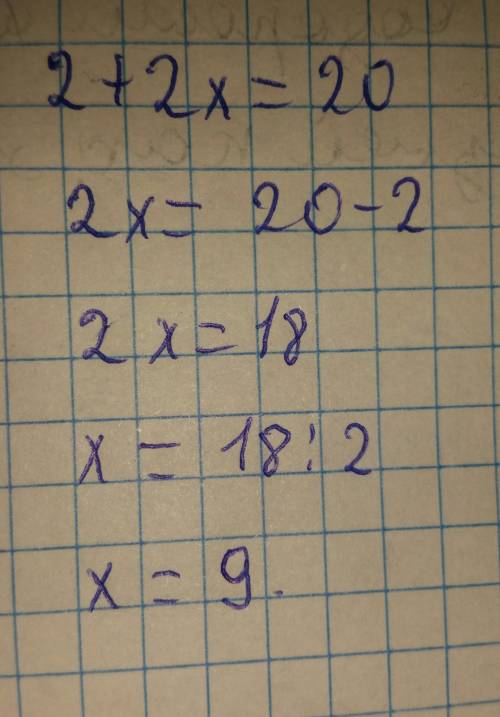 2+2x=20
2x= 20-2
2x=18
x = 18:2
x = 9.